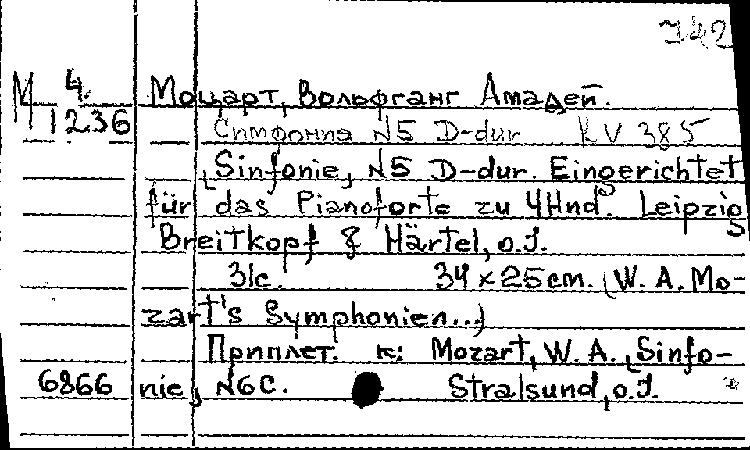 742
М 4. Моцарт, Вольфганг Амадей.
1236 Симфония N5 D-dur KV 385
[Sinfonie, N5 D-dur. Eingerichtet
für das Pianoforte zu 4Hnd. Leipzig
Breitkopf & Härtel, o.J.
31с. 34×25cm. (W. A. Mo-
zart's Symphonien...)
Приплет. к: Mozart, W. A. [Sinfo-
6866 nie, N6C. Stralsund, o.J.